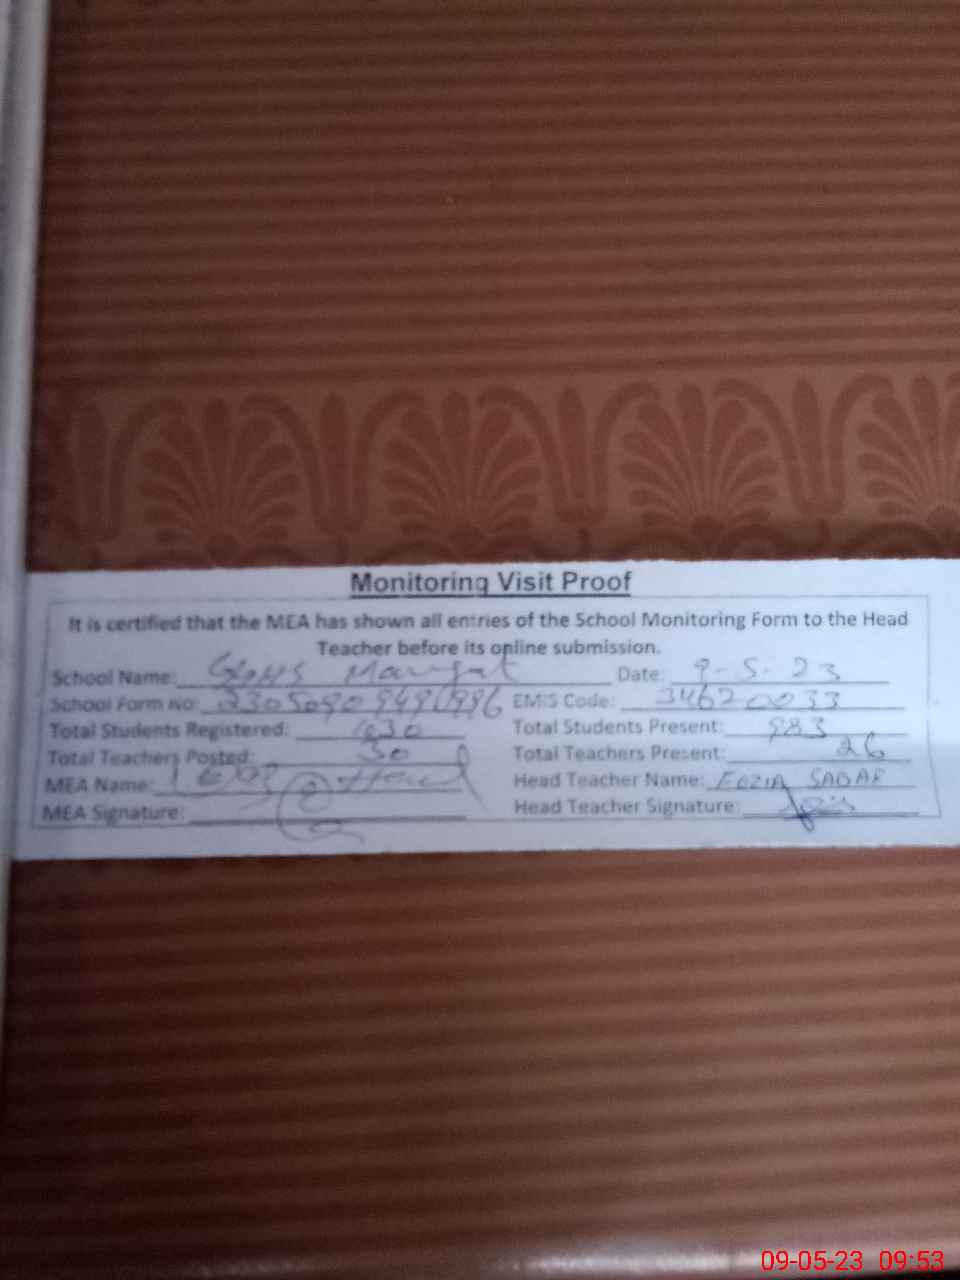 Monitoring Visit Proof
It is certified that the MEA has shown all entries of the School Monitoring Form to the Head
Teacher before its online submission.
School Name: Date: 9-5-23
School Form No: EMIS Code: 34620033
Total Students Registered: 1030 Total Students Present: 983
Total Teachers Posted: 30 Total Teachers Present: 26
MEA Name: Head Teacher Name: FOZIA SADAF
MEA Signature: Head Teacher Signature:
09-05-23 09:53